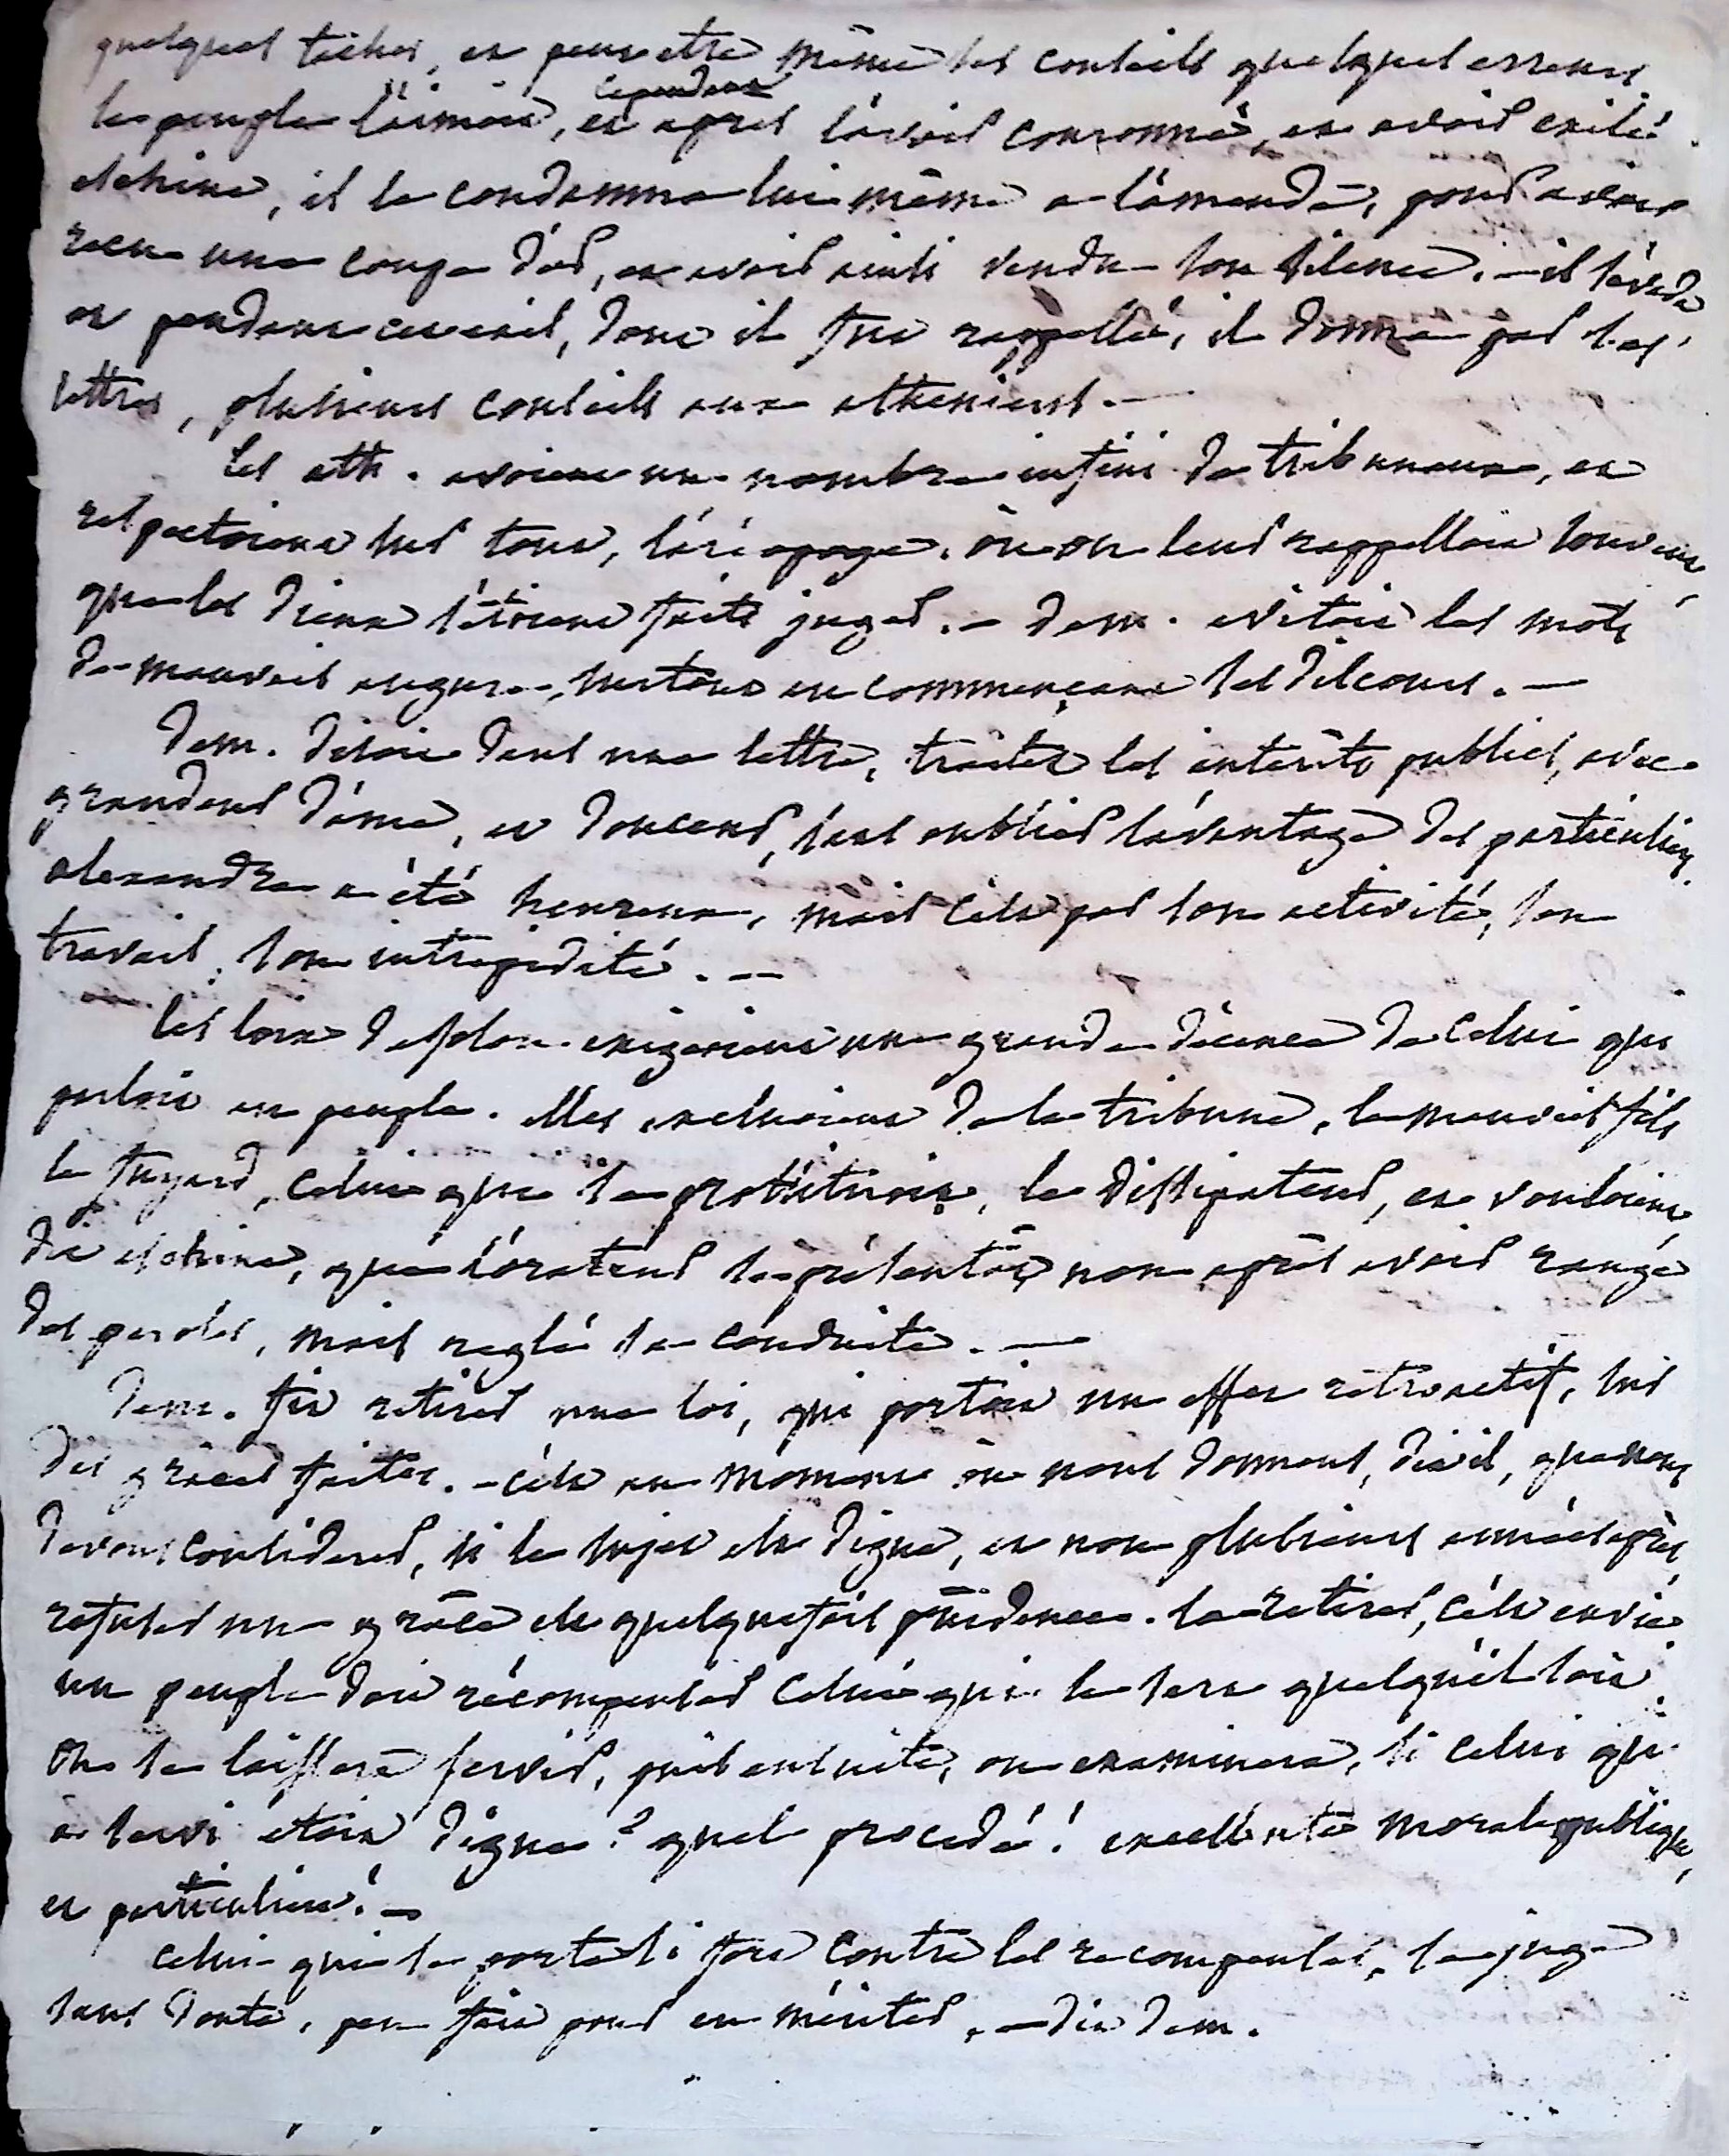 quelques taches, et peut etre même ses conseils quelques erreurs.
le peuple l'aimoit, cependant et après l'avoir couronné, et avoir exilé
eschine, il le condamna lui même a l'amende, pour avoir
recu une coupe d'or, et avoir ainsi vendu son silence. - il s'évada
et pendant cet exil, dont il fut rappellé, il donna par ses
lettres, plusieurs conseils aux atheniens. -
les ath. avoient un nombre infini de tribunaux, et
respectoient sur tout, l'aréopage. où on leur rappelloit souvent,
que les dieux s'étoient faits juges. - dem. evitoit les mots
de mauvais augure, surtout en commençant ses discours. -
dem. disoit dans une lettre, traitez les interêts publics, avec
grandeur d'ame, et douceur, sans oublier l'avantage des particuliers.
alexandre a été heureux, mais c'est par son activité, son
travail, son intrepidité. -
les loix de solon exigeoient une grande décence de celui qui
parloit au peuple. elles excluoient de la tribune, le mauvais fils
le fuyard, celui qui se prostituoit, le dissipateur, et vouloient,
dit eschine, que l'orateur se présentât, non après avoir rangé
des paroles, mais reglé sa conduite. -
dem. fit retirer une loi, qui portoit un effet rétroactif, sur
des grâces faites. - c'est au moment où nous donnons, dit il, que nous
devons considerer, si le sujet est digne, et non plusieurs années après,
refuser une grâce est quelquefois prudence. la retirer, c'est envie
un peuple doit récompenser celui qui le sert quelqu'il soit.
on se laissera servir, puis ensuite, on examinera, si celui qui
a servi etoit digne? quel procedé! excellente morale publique,
et particuliere! -
celui qui se porte si fort contre les recompenses, se juge
sans doute, peu fait pour en mériter, - dit dem.